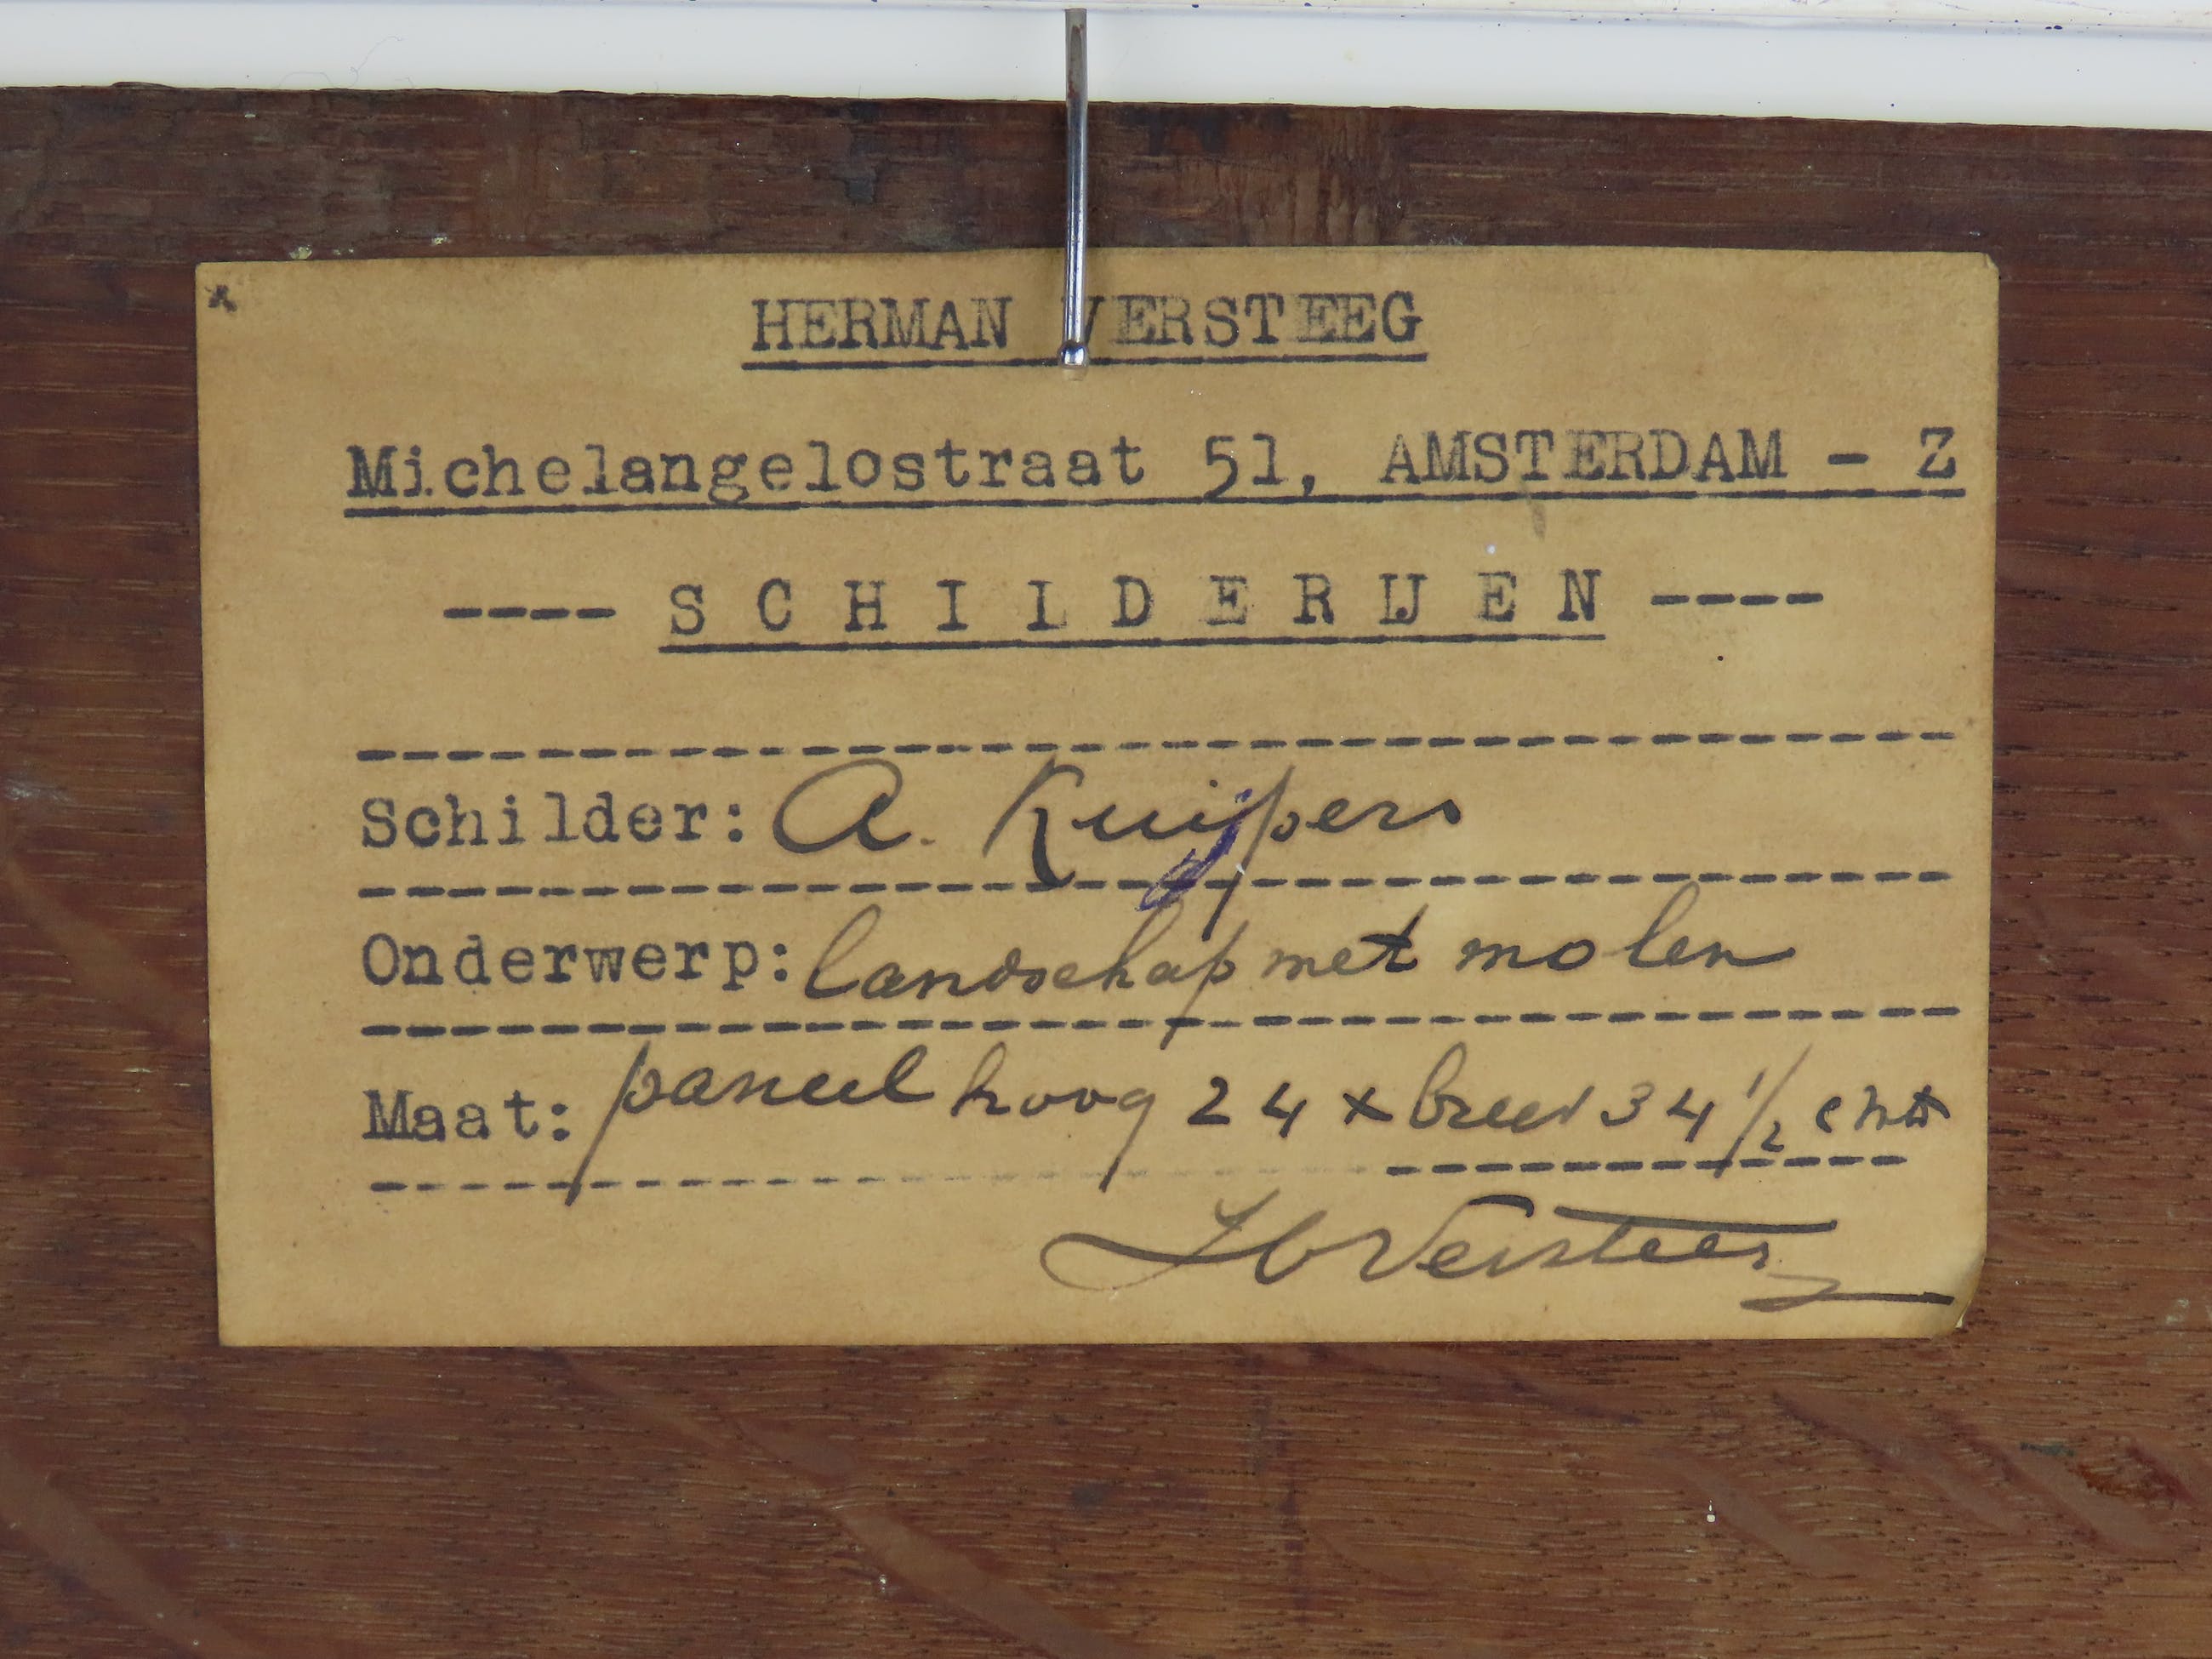 HERMAN VERSTEEG
Michelangelostraat 51, AMSTERDAM - Z
---- S C H I L D E R IJ E N ----
Schilder: A. Kuijpers
Onderwerp: landschap met molen
Maat: paneel hoog 24 x breed 34 1/2 cm
H Versteeg